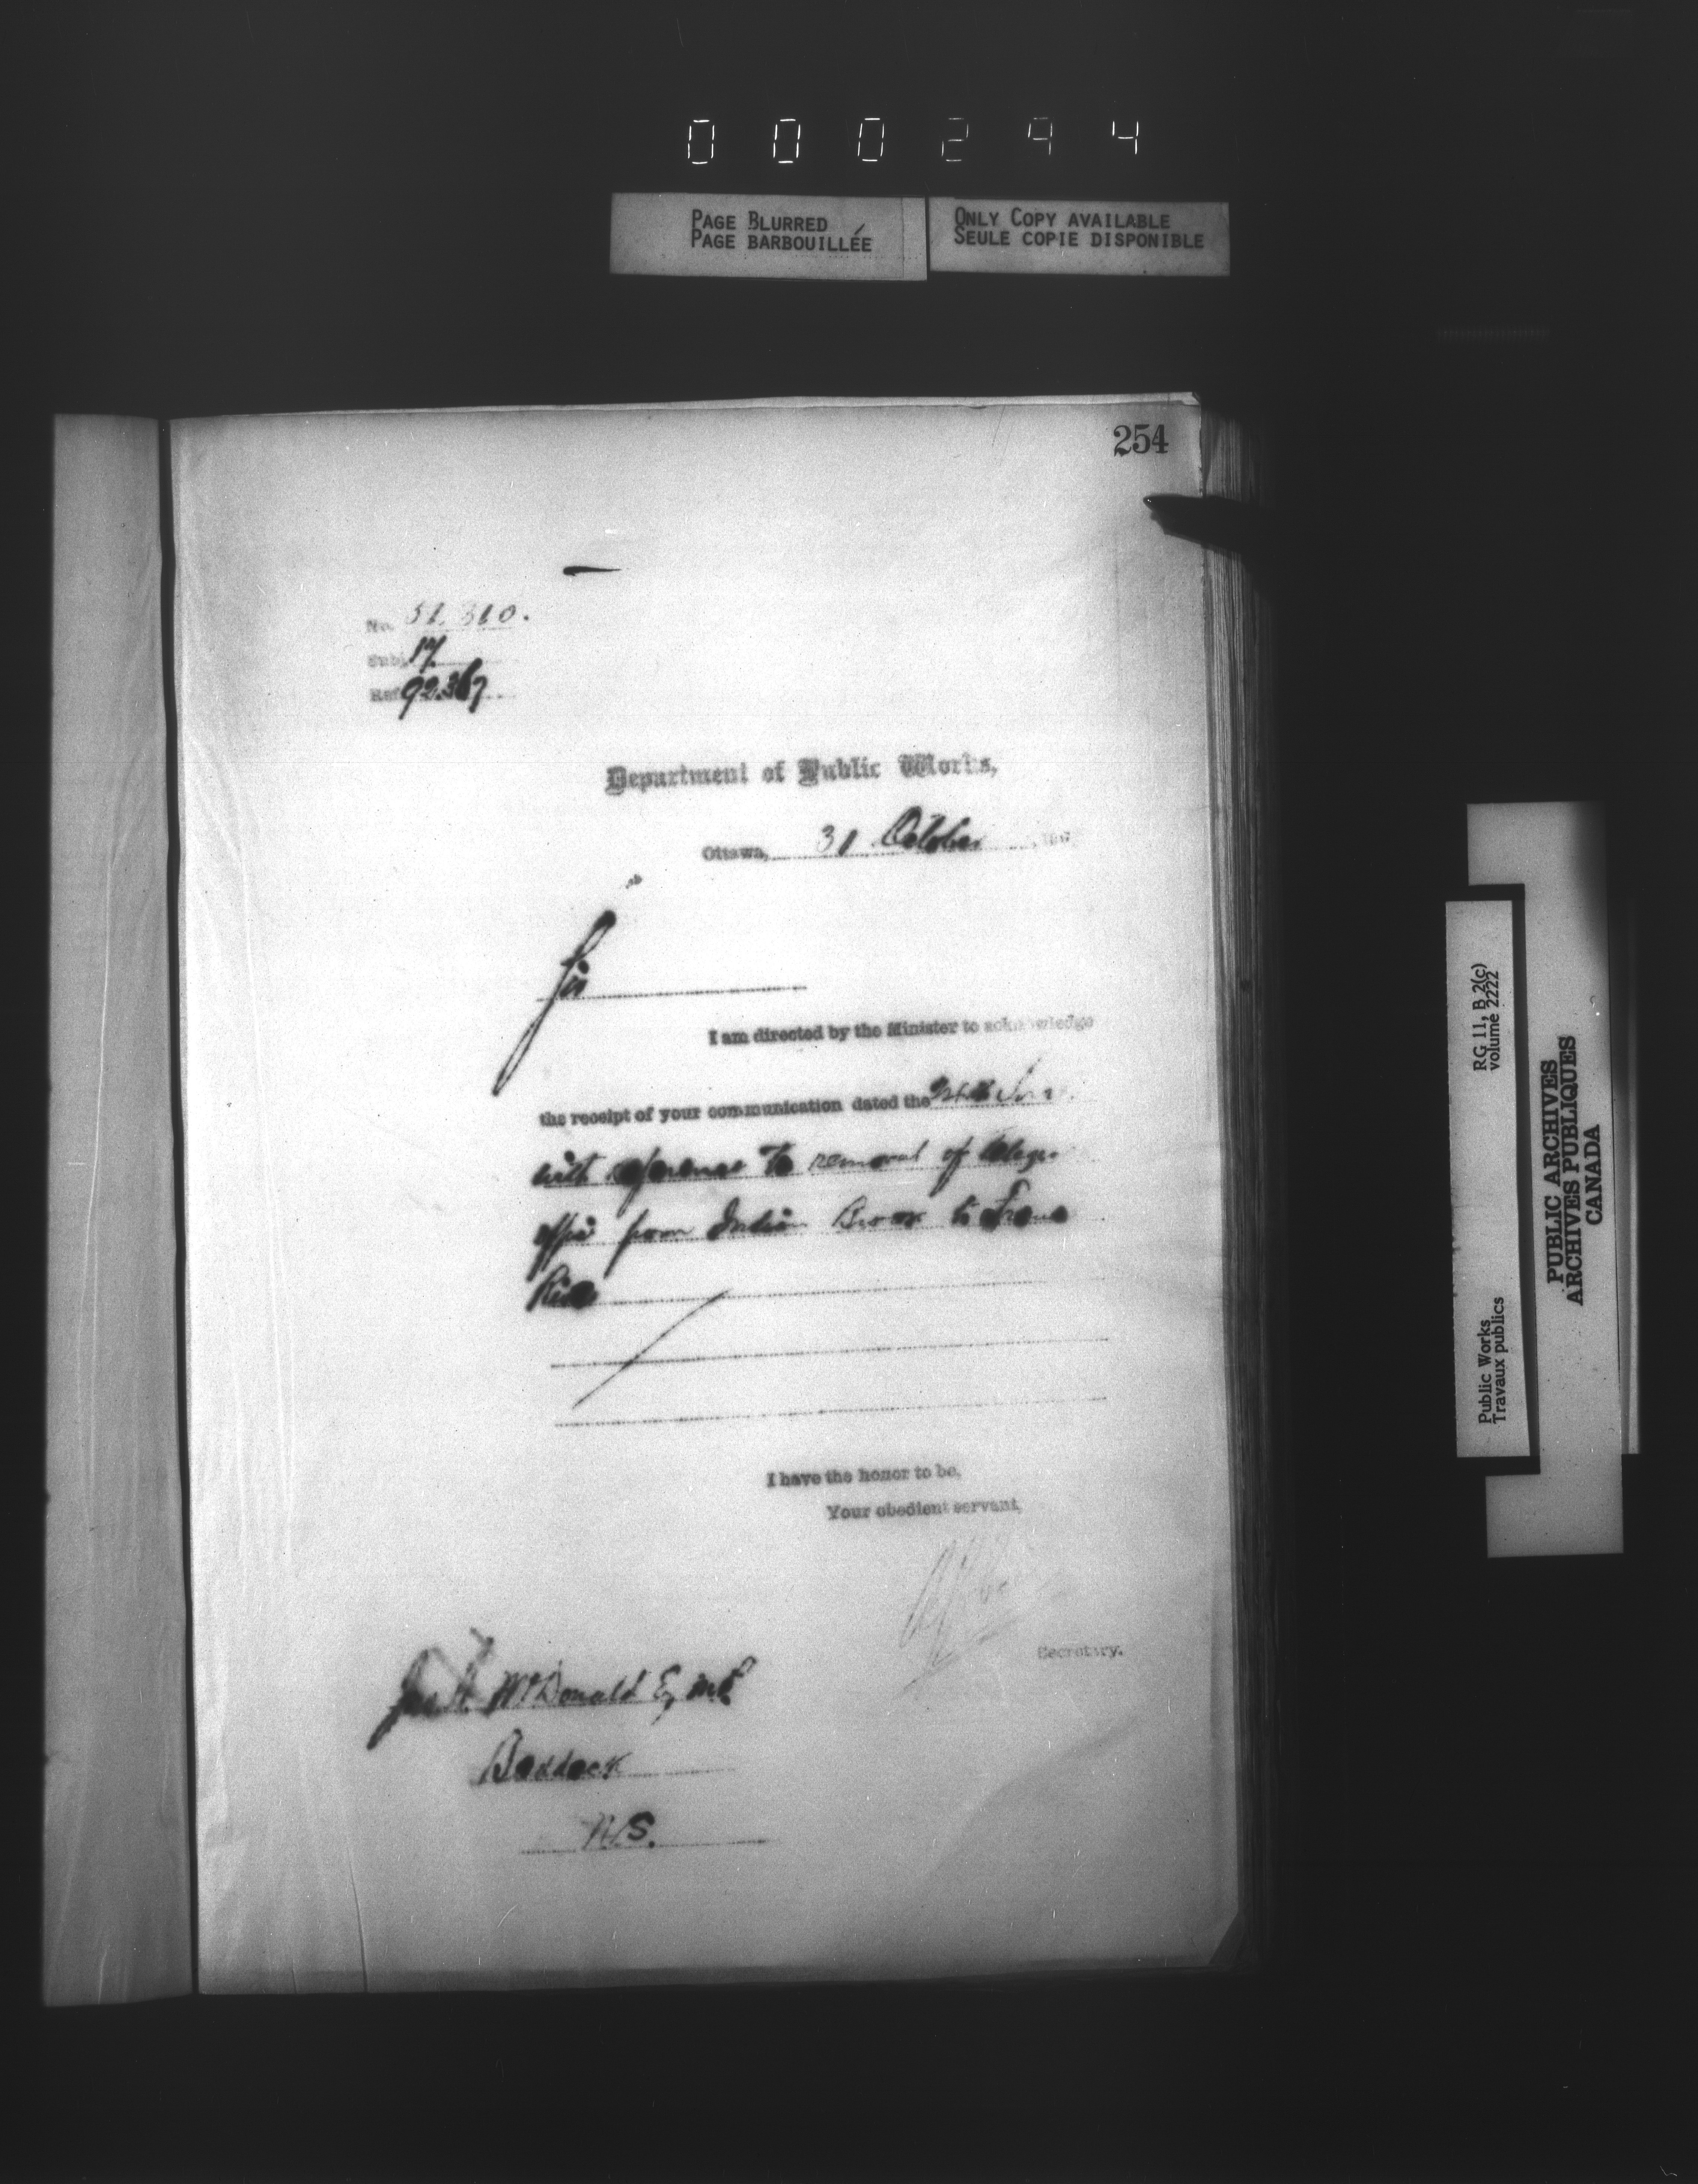 000294
PAGE BLURRED
PAGE BARBOUILLÉE
ONLY COPY AVAILABLE
SEULE COPIE DISPONIBLE
254
No. 51.310.
Subj. 17.
Ref. 92.367
Department of Public Works,
Ottawa, 31 October
Sir
I am directed by the Minister to acknowledge
the receipt of your communication dated the
with reference to removal of
office from Indian Brook to
I have the honor to be,
Your obedient servant,
Secretary.
McDonald Esq M.P
Baddeck
N.S.
RG 11, B 2(c)
volume 2222
Public Works
Travaux publics
PUBLIC ARCHIVES
ARCHIVES PUBLIQUES
CANADA